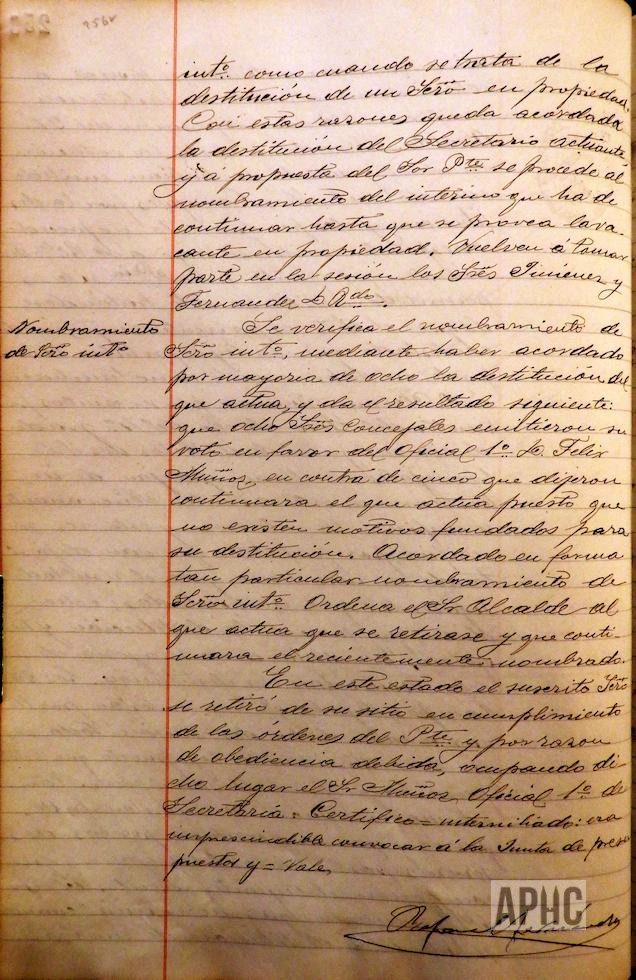 256v
intº. como cuando se trata de la
destitución de un Srio en propiedad.
Con estas razones queda acordada
la destitución del Secretario actuante
y a propuesta del Sor Pte. se procede al
nombramiento del interino que ha de
continuar hasta que se provea la va-
cante en propiedad. Vuelven á tomar
parte en la sesión los Srés Jimenez y
Fernandez D. Rdo.
Nombramiento
de Srio intº
Se verifica el nombramiento de
Srio intº, mediante haber acordado
por mayoria de ocho la destitución del
que actua, y da el resultado seguiente:
que ocho Srés Concejales emitieron su
voto en favor del Oficial 1º D. Felix
Muñoz, en contra de cinco que dijeron
continuara el que actua puesto que
no existen motivos fundados para
su destitución. Acordado en forma
tan particular nombramiento de
Srio intº. Ordena el Sr Alcalde al
que actua que se retirase y que conti-
nuara el recientemente nombrado.
En este estado el suscrito Srio
se retiró de su sitio en cumplimiento
de las órdenes del Pte. y por razon
de obediencia debida, ocupando di-
cho lugar el Sr Muñoz, Oficial 1º de
Secretaría = Certifico = interniliado: era
imprescindible convocar á la Junta de presu-
puestos y = Vale
APHC